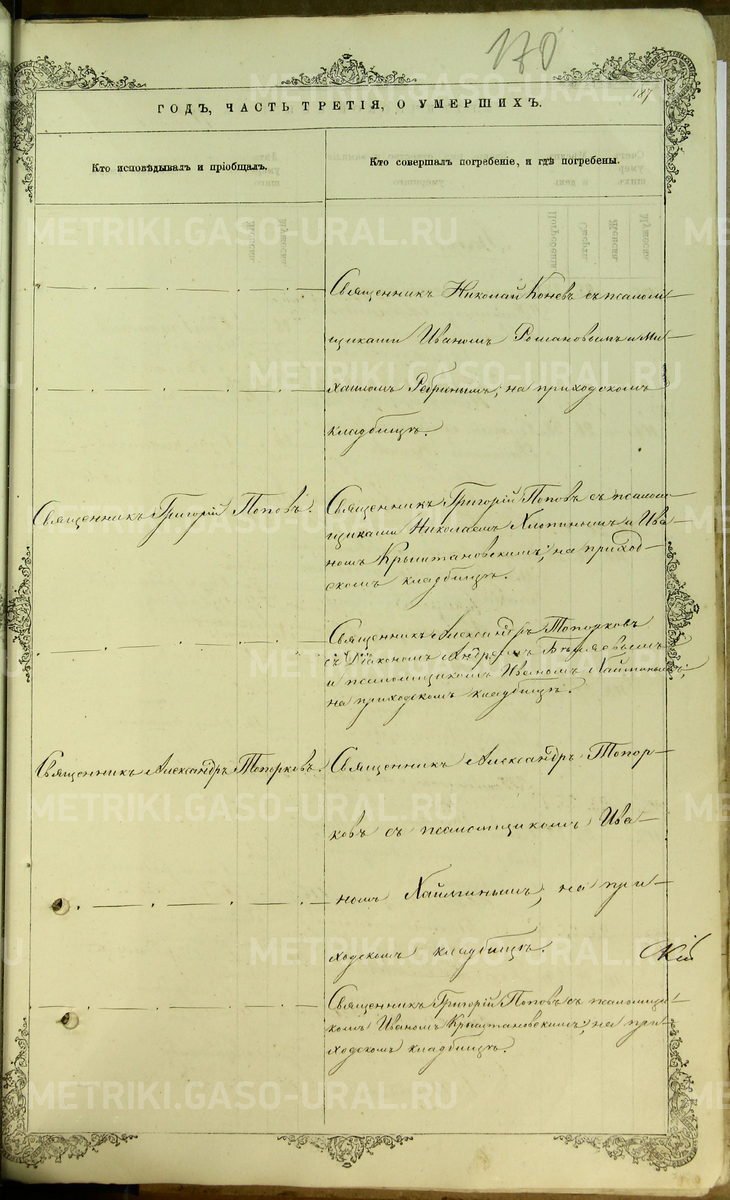 170
187
ГОДЪ, ЧАСТЬ ТРЕТІЯ, О УМЕРШИХЪ.
Кто исповѣдывалъ и пріобщалъ.
Кто совершалъ погребеніе, и гдѣ погребены.
Священникъ Николай Коневъ съ псалом-
щиками Иваномъ Романовымъ и Ми-
хаиломъ Ребринымъ; на приходскомъ
кладбищѣ.
Священникъ Григорій Поповъ.
Священникъ Григорій Поповъ съ псалом-
щиками Николаемъ Хлопинымъ и Ива-
номъ Крыштановскимъ; на приход-
скомъ кладбищѣ.
Священникъ Александръ Топорковъ
съ Діакономъ Андреемъ Бѣляевымъ
и псаломщикомъ Иваномъ Хайминымъ;
на приходскомъ кладбищѣ.
Священникъ Александръ Топорковъ.
Священникъ Александръ Топор-
ковъ съ псаломщикомъ Ива-
номъ Хайминымъ; на при-
ходскомъ кладбищѣ.
Священникъ Григорій Поповъ съ псаломщи-
комъ Иваномъ Крыштановскимъ; на при-
ходскомъ кладбищѣ.
METRIKI.GASO-URAL.RU